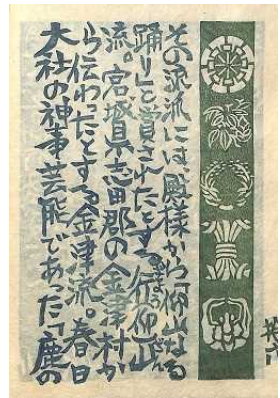 その源流には、殿様から「仰山なる
踊り」と賞されたとする行仰山
流。宮城県志田郡の金津村か
ら伝わったとする金津流。春日
大社の神事芸能であった「鹿の